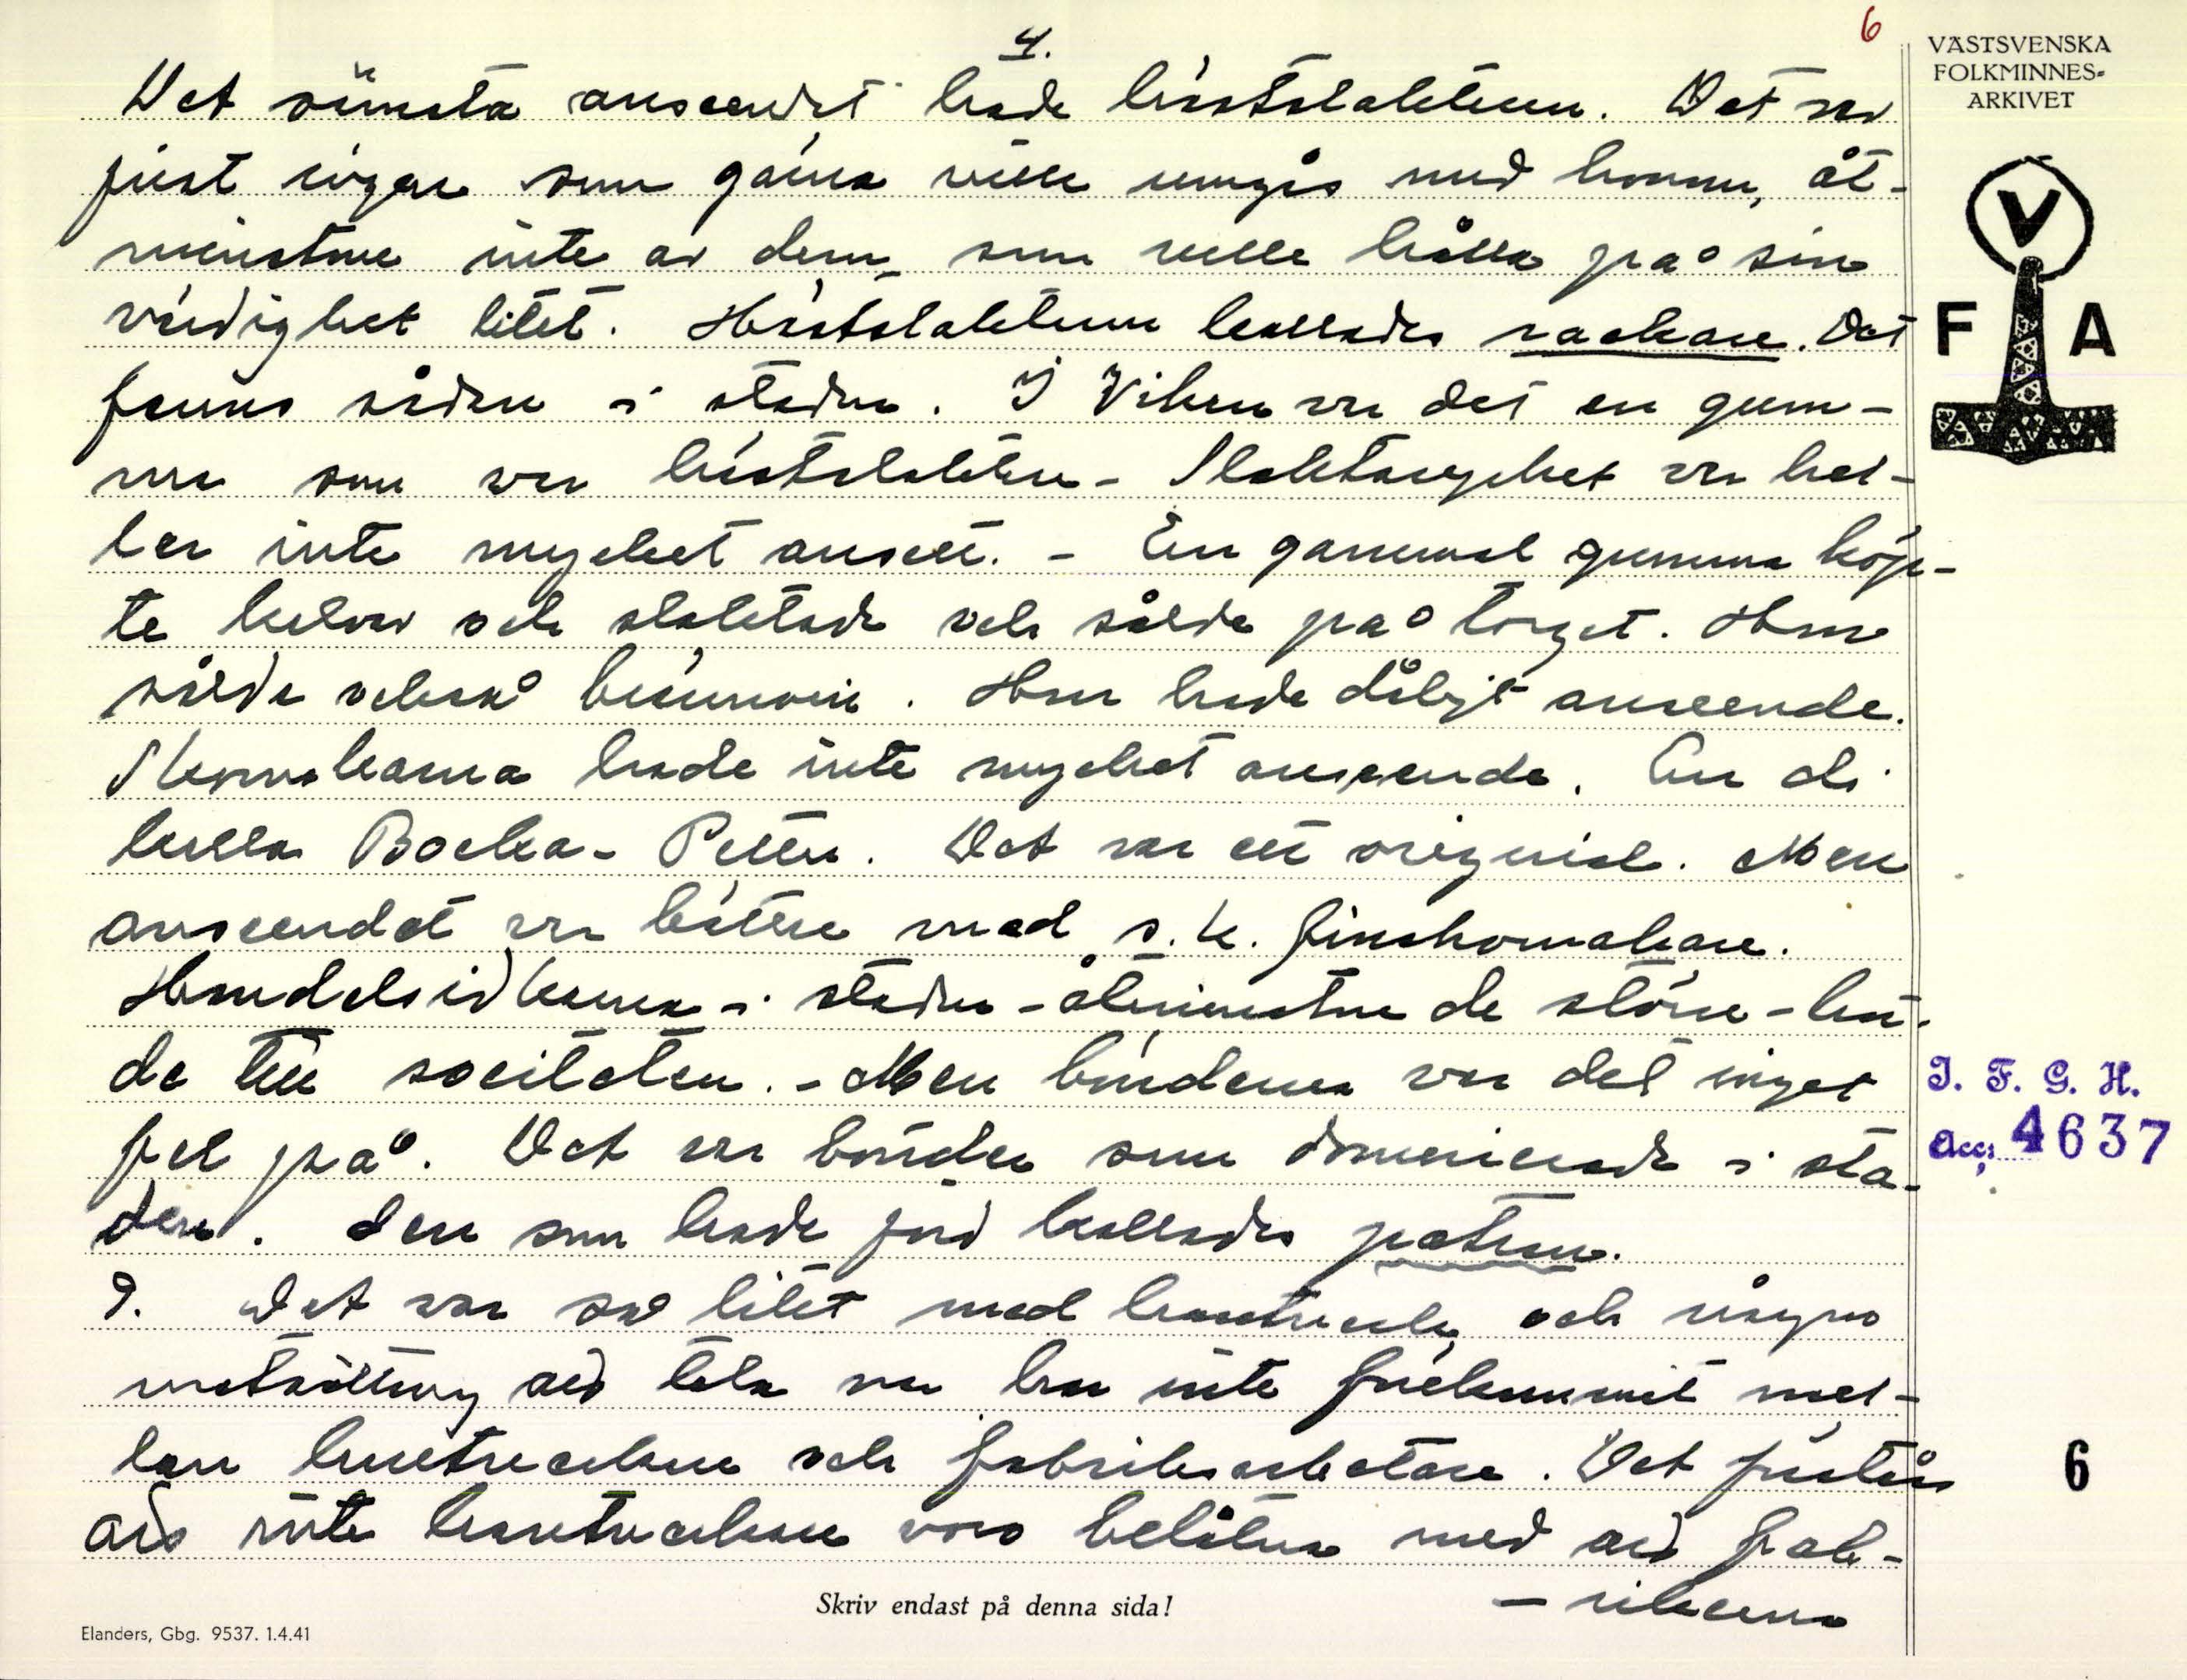 4.
6
VÄSTSVENSKA
FOLKMINNES-
ARKIVET
V
F A
Det sämsta anseendet hade hästslaktaren. Det var
just ingen som gärna ville umgås med honom, åt-
minstone inte av dem, som ville hålla på sin
värdighet litet. Hästslaktaren kallades rackare. Det
fanns sådan i staden. I Viken var det en gum-
ma som var hästslaktare - Slaktaryrket var hel-
ler inte mycket ansett. - En gammal gumma köp-
te kalvar och slaktade och sålde på torget. Hon
sålde också brännvin. Hon hade dåligt anseende.
Skomakarna hade inte mycket anseende. En de
kalla Bocka-Petter. Det var ett original. Men
anseendet var bättre med s.k. finskomakare.
Handelsidkarna i staden - åtminstone de större - hör-
de till societeten. - Men bönderna var det inget
fel på. Det var bönder som dominerade i sta-
den. Den som hade jord kallades patron.
9. Det var så litet med hantverk, och någon
motsättning att tala om har inte förekommit mel-
lan hantverkare och fabriksarbetare. Det förstås
att inte hantverkare voro belåtna med att fab-
- rikerna
I. F. G. H.
Acc: 4637
6
Skriv endast på denna sida!
Elanders, Gbg. 9537. 1.4.41